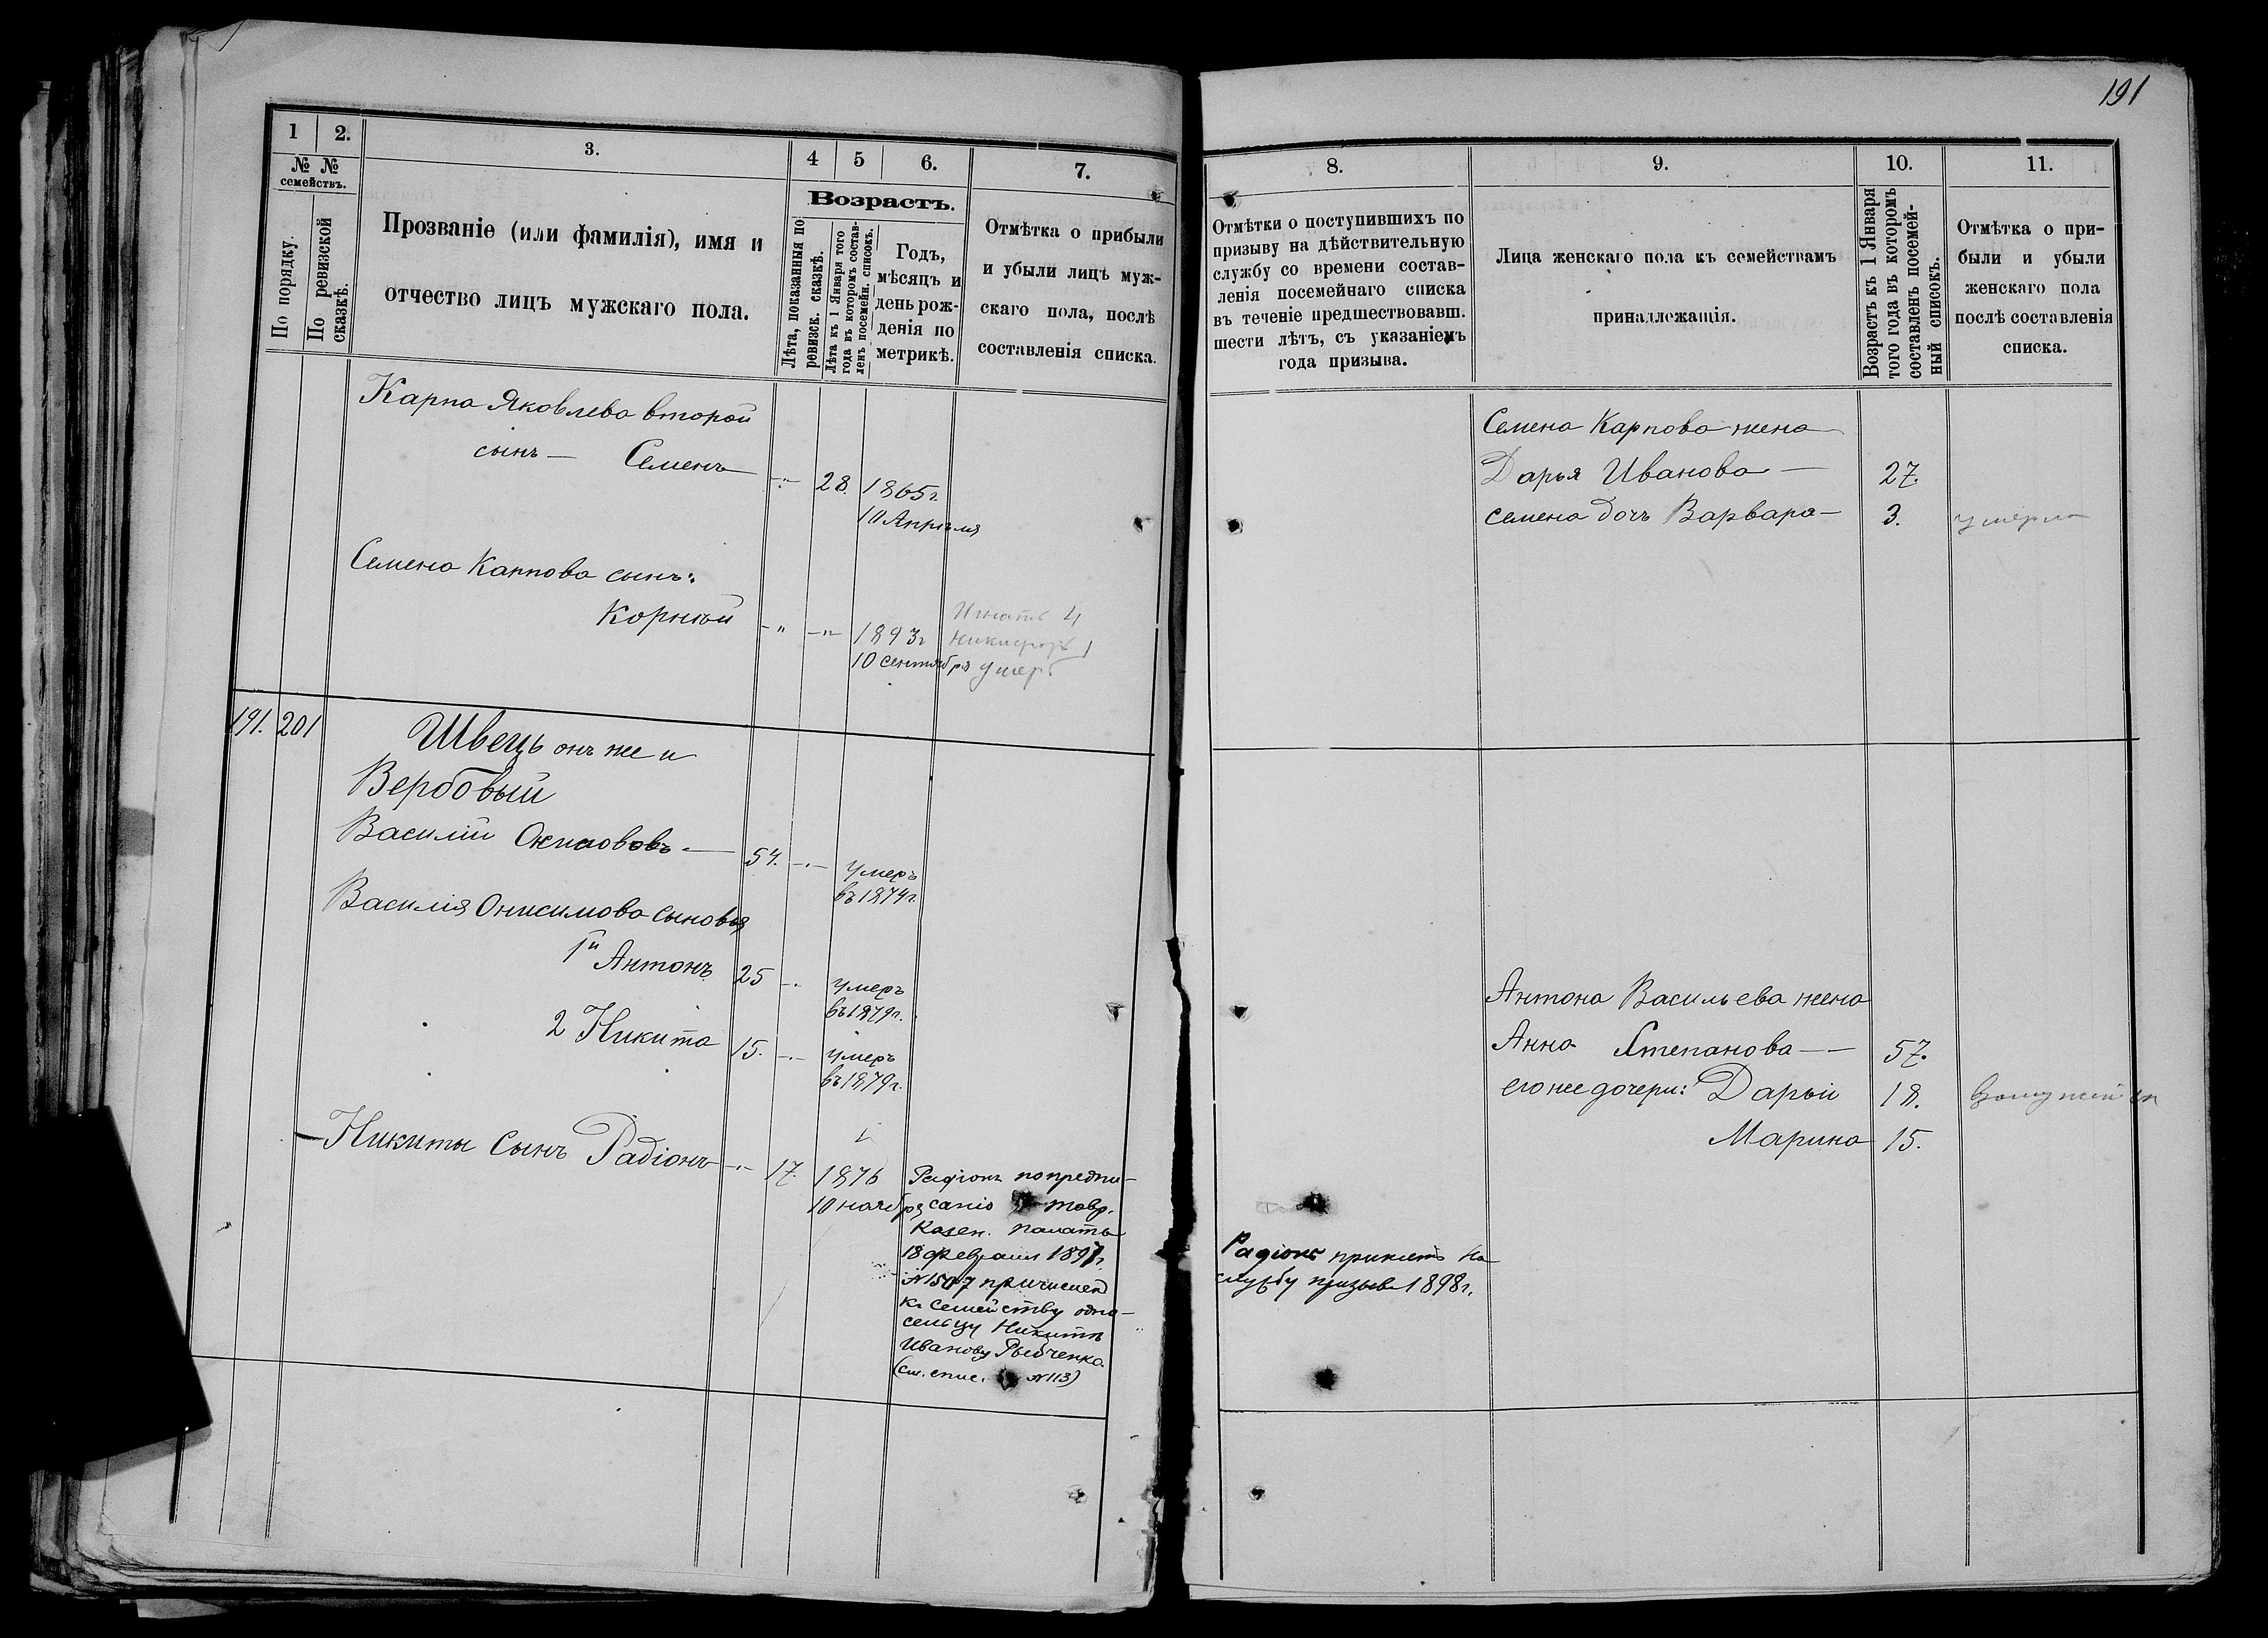 191
1
2.
3.
4
5
6.
7.
№ №
семействъ.
По порядку.
По ревизской
сказкѣ.
Прозваніе (или фамилія), имя и
отчество лицъ мужскаго пола.
Возрастъ.
Лѣта, показанныя по
ревизск. сказкѣ.
Лѣта къ 1 Января того
года въ которомъ состав-
ленъ посемейн. списокъ.
Годъ,
мѣсяцъ и
день рож-
денія по
метрикѣ.
Отмѣтка о прибыли
и убыли лицъ муж-
скаго пола, послѣ
составленія списка.
Карпа Яковлева второй
сынъ — Семенъ
28. 1865г.
10 Апрѣля
Семена Карпова сынъ:
Корнѣй
1893г
10 сентября
Игнатъ 4
Никифоръ 1
умеръ
191. 201
Швецъ онъ же и
Вербовый
Василій Онисимовъ — 54. умеръ
въ 1874г
Василія Онисимова сыновья
1й Антонъ 25 умеръ
въ 1879г.
2 Никита 15. умеръ
въ 1879г.
Никиты сынъ Радіонъ 17. 1876
10 ноября
Радіонъ по предпи-
санію Тавр.
Казен. Палаты
18 февраля 1897г.
№1507 причисленъ
къ семейству одно-
сельцу Никитѣ
Иванову Рыбченко
(см. спис. №113)
8.
9.
10.
11.
Отмѣтки о поступившихъ по
призыву на дѣйствительную
службу со времени состав-
ленія посемейнаго списка
въ теченіе предшествовавш.
шести лѣтъ, съ указаніемъ
года призыва.
Лица женскаго пола къ семействамъ
принадлежащія.
Возрастъ къ 1 Января
того года въ которомъ
составленъ посемей-
ный списокъ.
Отмѣтка о при-
были и убыли
женскаго пола
послѣ составленія
списка.
Семена Карпова жена
Дарья Иванова — 27.
Семена дочь Варвара — 3. умерла
Антона Васильева жена
Анна Степанова — 57.
его же дочери: Дарья 18.
Марина 15.
Радіонъ принятъ на
службу призыва 1898г.